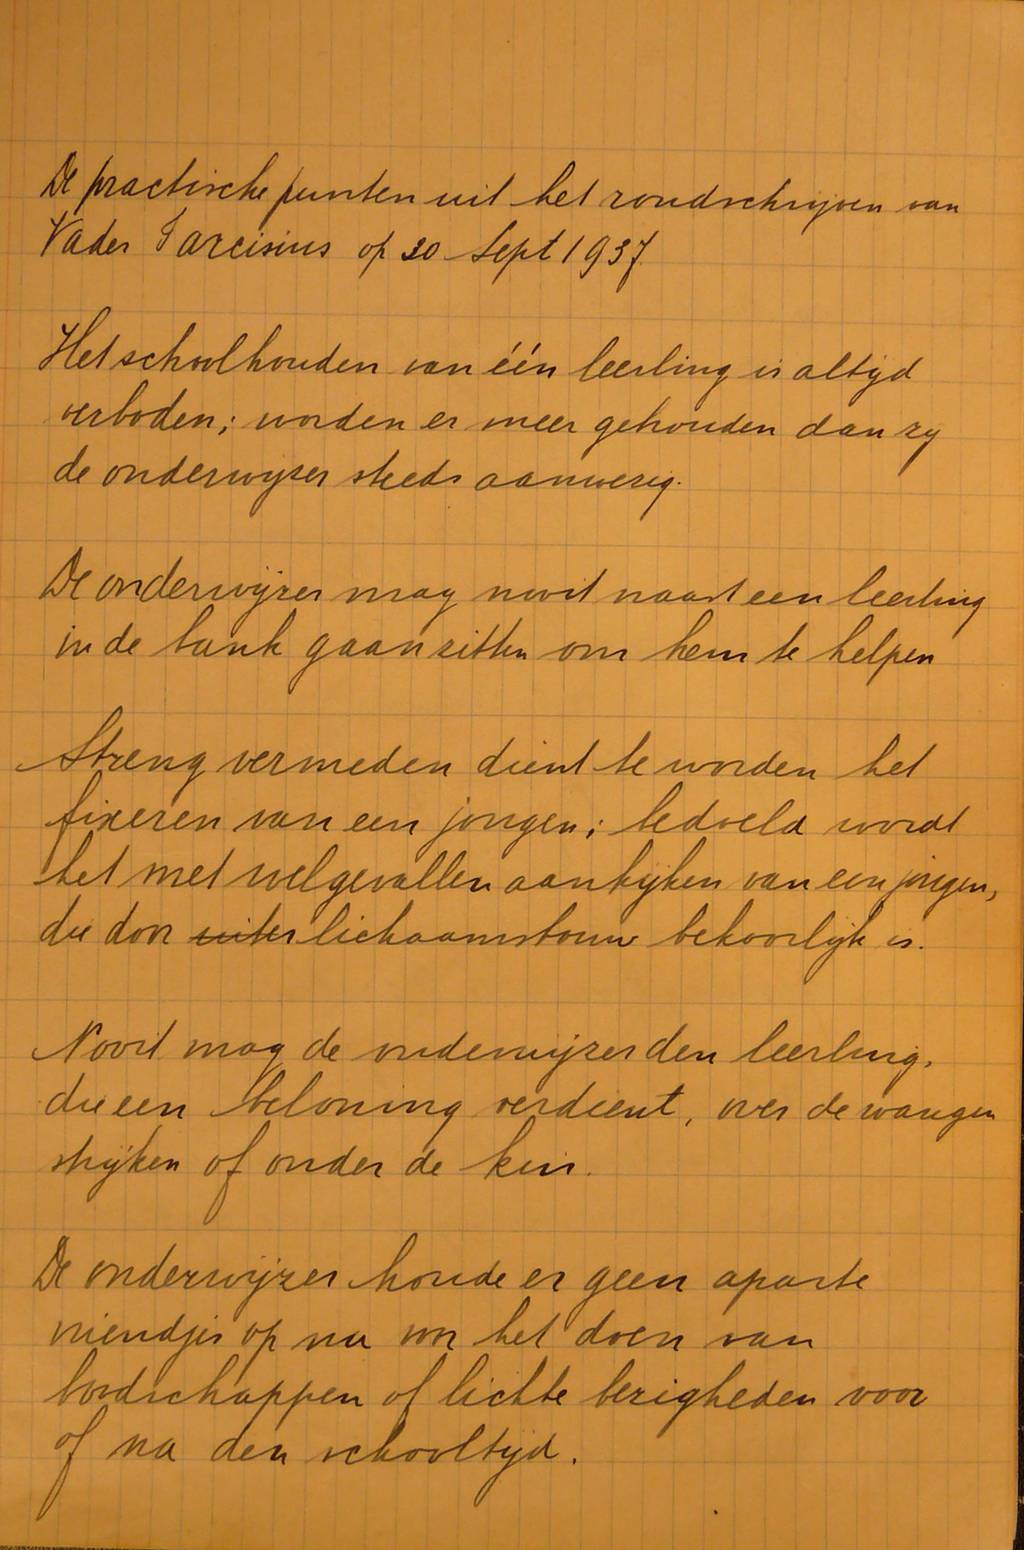 De practische punten uit het rondschrijven van
Vader Tarcisius op 30 Sept 1937
Het schoolhouden van één leerling is altijd
verboden; worden er meer gehouden dan zij
de onderwijzer steeds aanwezig.
De onderwijzer mag nooit naast een leerling
in de bank gaan zitten om hem te helpen
Streng vermeden dient te worden het
fixeren van een jongen; bedoeld wordt
het met welgevallen aankijken van een jongen,
die door uiter lichaamsbouw bekoorlijk is.
Nooit mag de onderwijzer den leerling,
die een beloning verdient, over de wangen
strijken of onder de kin.
De onderwijzer houde er geen aparte
vriendjes op na voor het doen van
boodschappen of lichte bezigheden voor
of na den schooltijd.